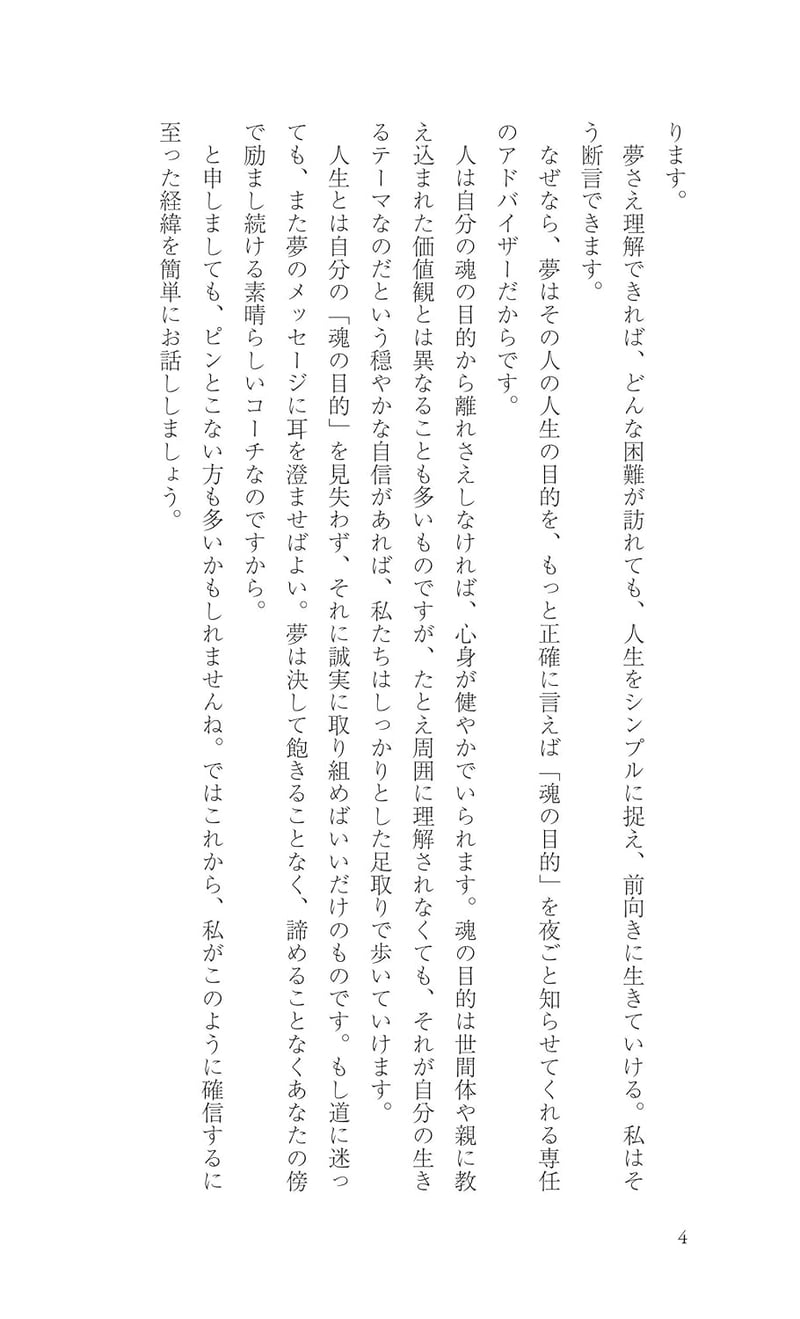 ります。
　夢さえ理解できれば、どんな困難が訪れても、人生をシンプルに捉え、前向きに生きていける。私はそ
う断言できます。
　なぜなら、夢はその人の人生の目的を、もっと正確に言えば「魂の目的」を夜ごと知らせてくれる専任
のアドバイザーだからです。
　人は自分の魂の目的から離れさえしなければ、心身が健やかでいられます。魂の目的は世間体や親に教
え込まれた価値観とは異なることも多いものですが、たとえ周囲に理解されなくても、それが自分の生き
るテーマなのだという穏やかな自信があれば、私たちはしっかりとした足取りで歩いていけます。
　人生とは自分の「魂の目的」を見失わず、それに誠実に取り組めばいいだけのものです。もし道に迷っ
ても、また夢のメッセージに耳を澄ませばよい。夢は決して飽きることなく、諦めることなくあなたの傍
で励まし続ける素晴らしいコーチなのですから。
　と申しましても、ピンとこない方も多いかもしれませんね。ではこれから、私がこのように確信するに
至った経緯を簡単にお話ししましょう。
4